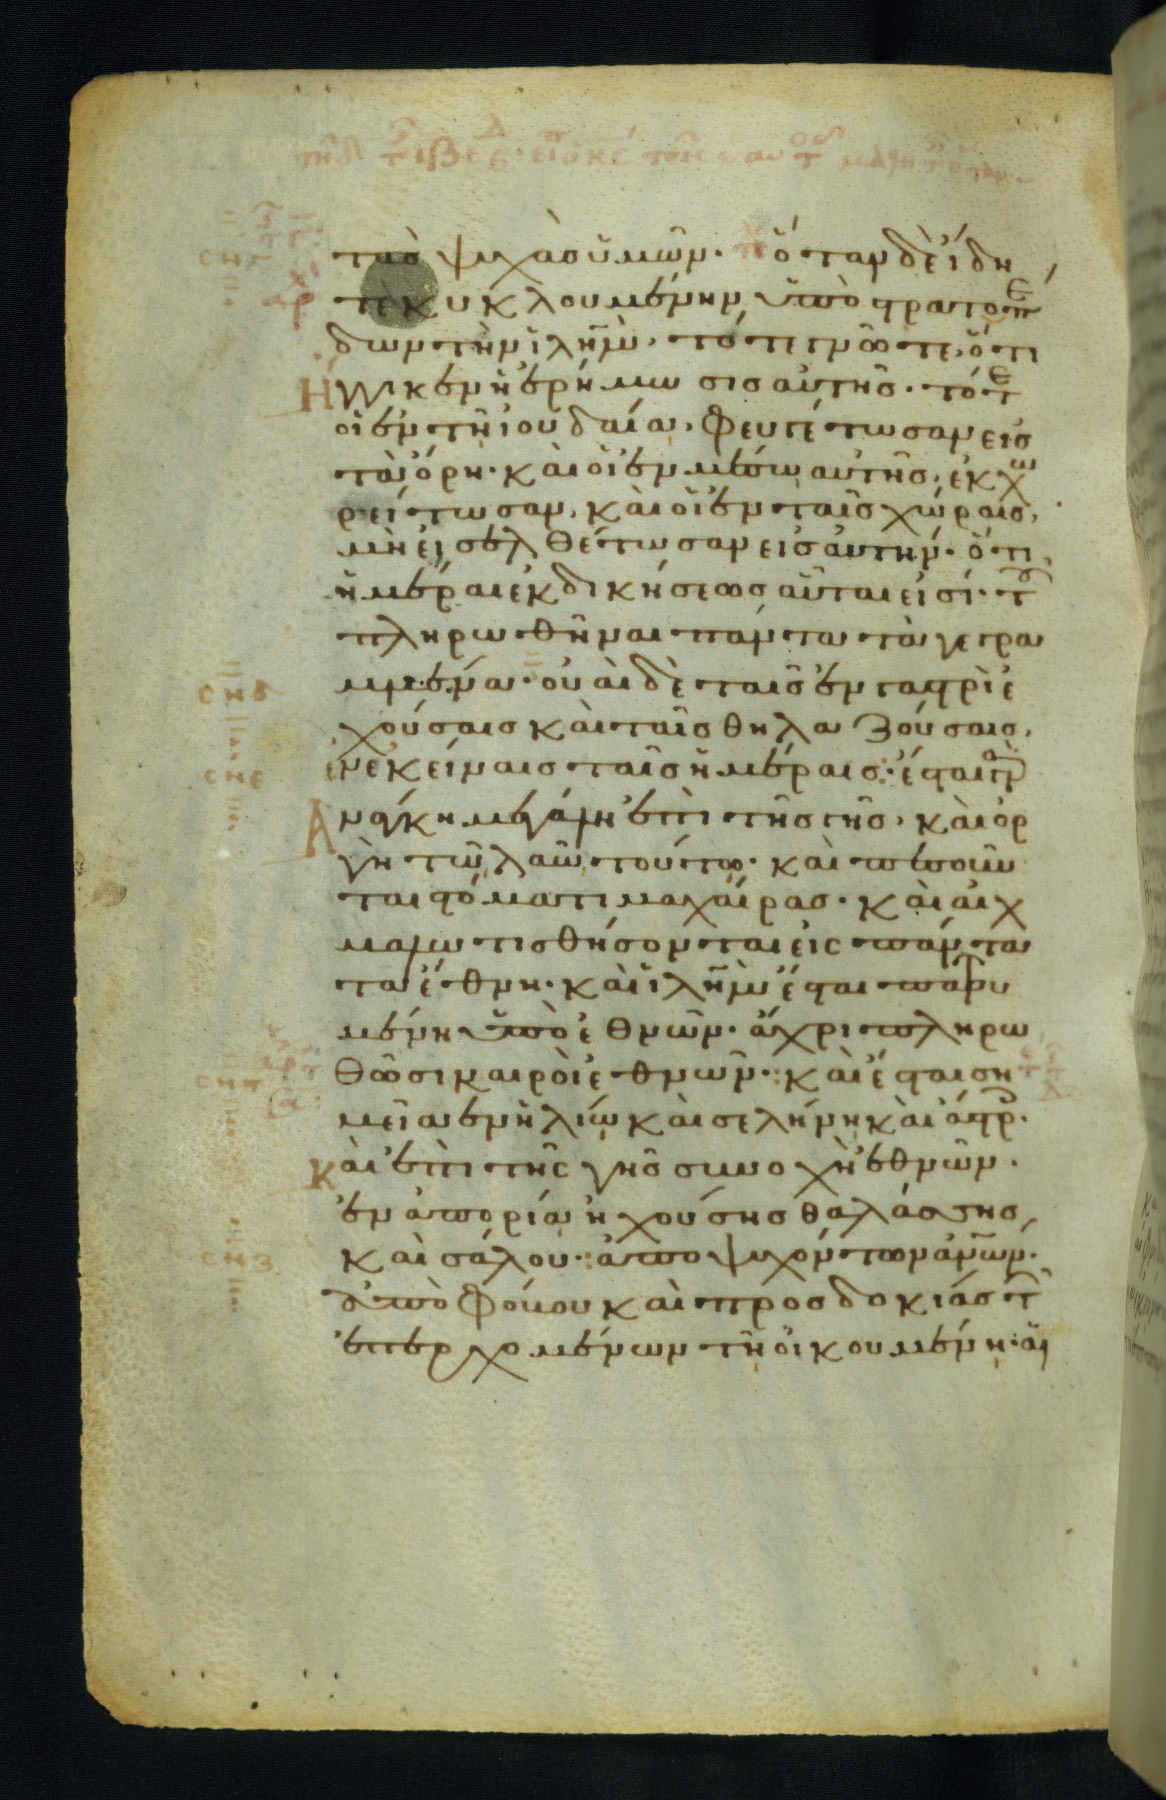 τὰσ ψυχὰσ ὑμῶν· ὅταν δὲ ἴδη
τε κυκλουμένην ὑπὸ στρατοπε
δων τὴν ἰλημ̅· τότε γνῶτε, ὅτι
ἤγγικεν ἡ ἐρήμωσισ αὐτῆσ· τότε
οἱ ἐν τῆ ἰουδαία, φευγέτωσαν εἰσ
τὰ ὄρη· καὶ οἱ ἐν μέσω αὐτῆσ, ἐκχω
ρείτωσαν, καὶ οἱ ἐν ταῖσ χώραισ,
μὴ εἰσελθέτωσαν εἰσ αὐτήν· ὅτι
ἡμέραι ἐκδικήσεωσ αὗταί εἰσί· τοῦ
πληρωθῆναι πάντα τὰ γεγρα
μμένα· οὐαὶ δὲ ταῖσ ἐν γαστρὶ ἐ
χούσαισ καὶ ταῖσ θηλαζούσαισ,
ἐν ἐκείναισ ταῖσ ἡμέραισ· ἔσται γὰρ
ἀνάγκη μεγάλη ἐπὶ τῆσ γῆσ, καὶ ὀρ
γὴ τῶ λαῶ τούτω· καὶ πεσοῦν
ται στόματι μαχαίρασ· καὶ αἰχ
μαλωτισθήσονται εἰς πάντα
τὰ ἔθνη· καὶ ἰλημ̅ ἔσται πατου
μένη ὑπὸ ἐθνῶν· ἄχρι πληρω
θῶσι καιροὶ ἐθνῶν· καὶ ἔσται ση
μεῖα ἐν ἡλίω καὶ σελήνη καὶ ἄστρ·
καὶ ἐπὶ τῆς γῆσ συνοχὴ ἐθνῶν·
ἐν ἀπορία ἠχούσησ θαλάσσησ
καὶ σάλου· ἀποψυχόντων ἀν̅ων·
ἀπὸ φόβου καὶ προσδοκίασ τῶν
ἐπερχομένων τῆ οἰκουμένη· αἱ